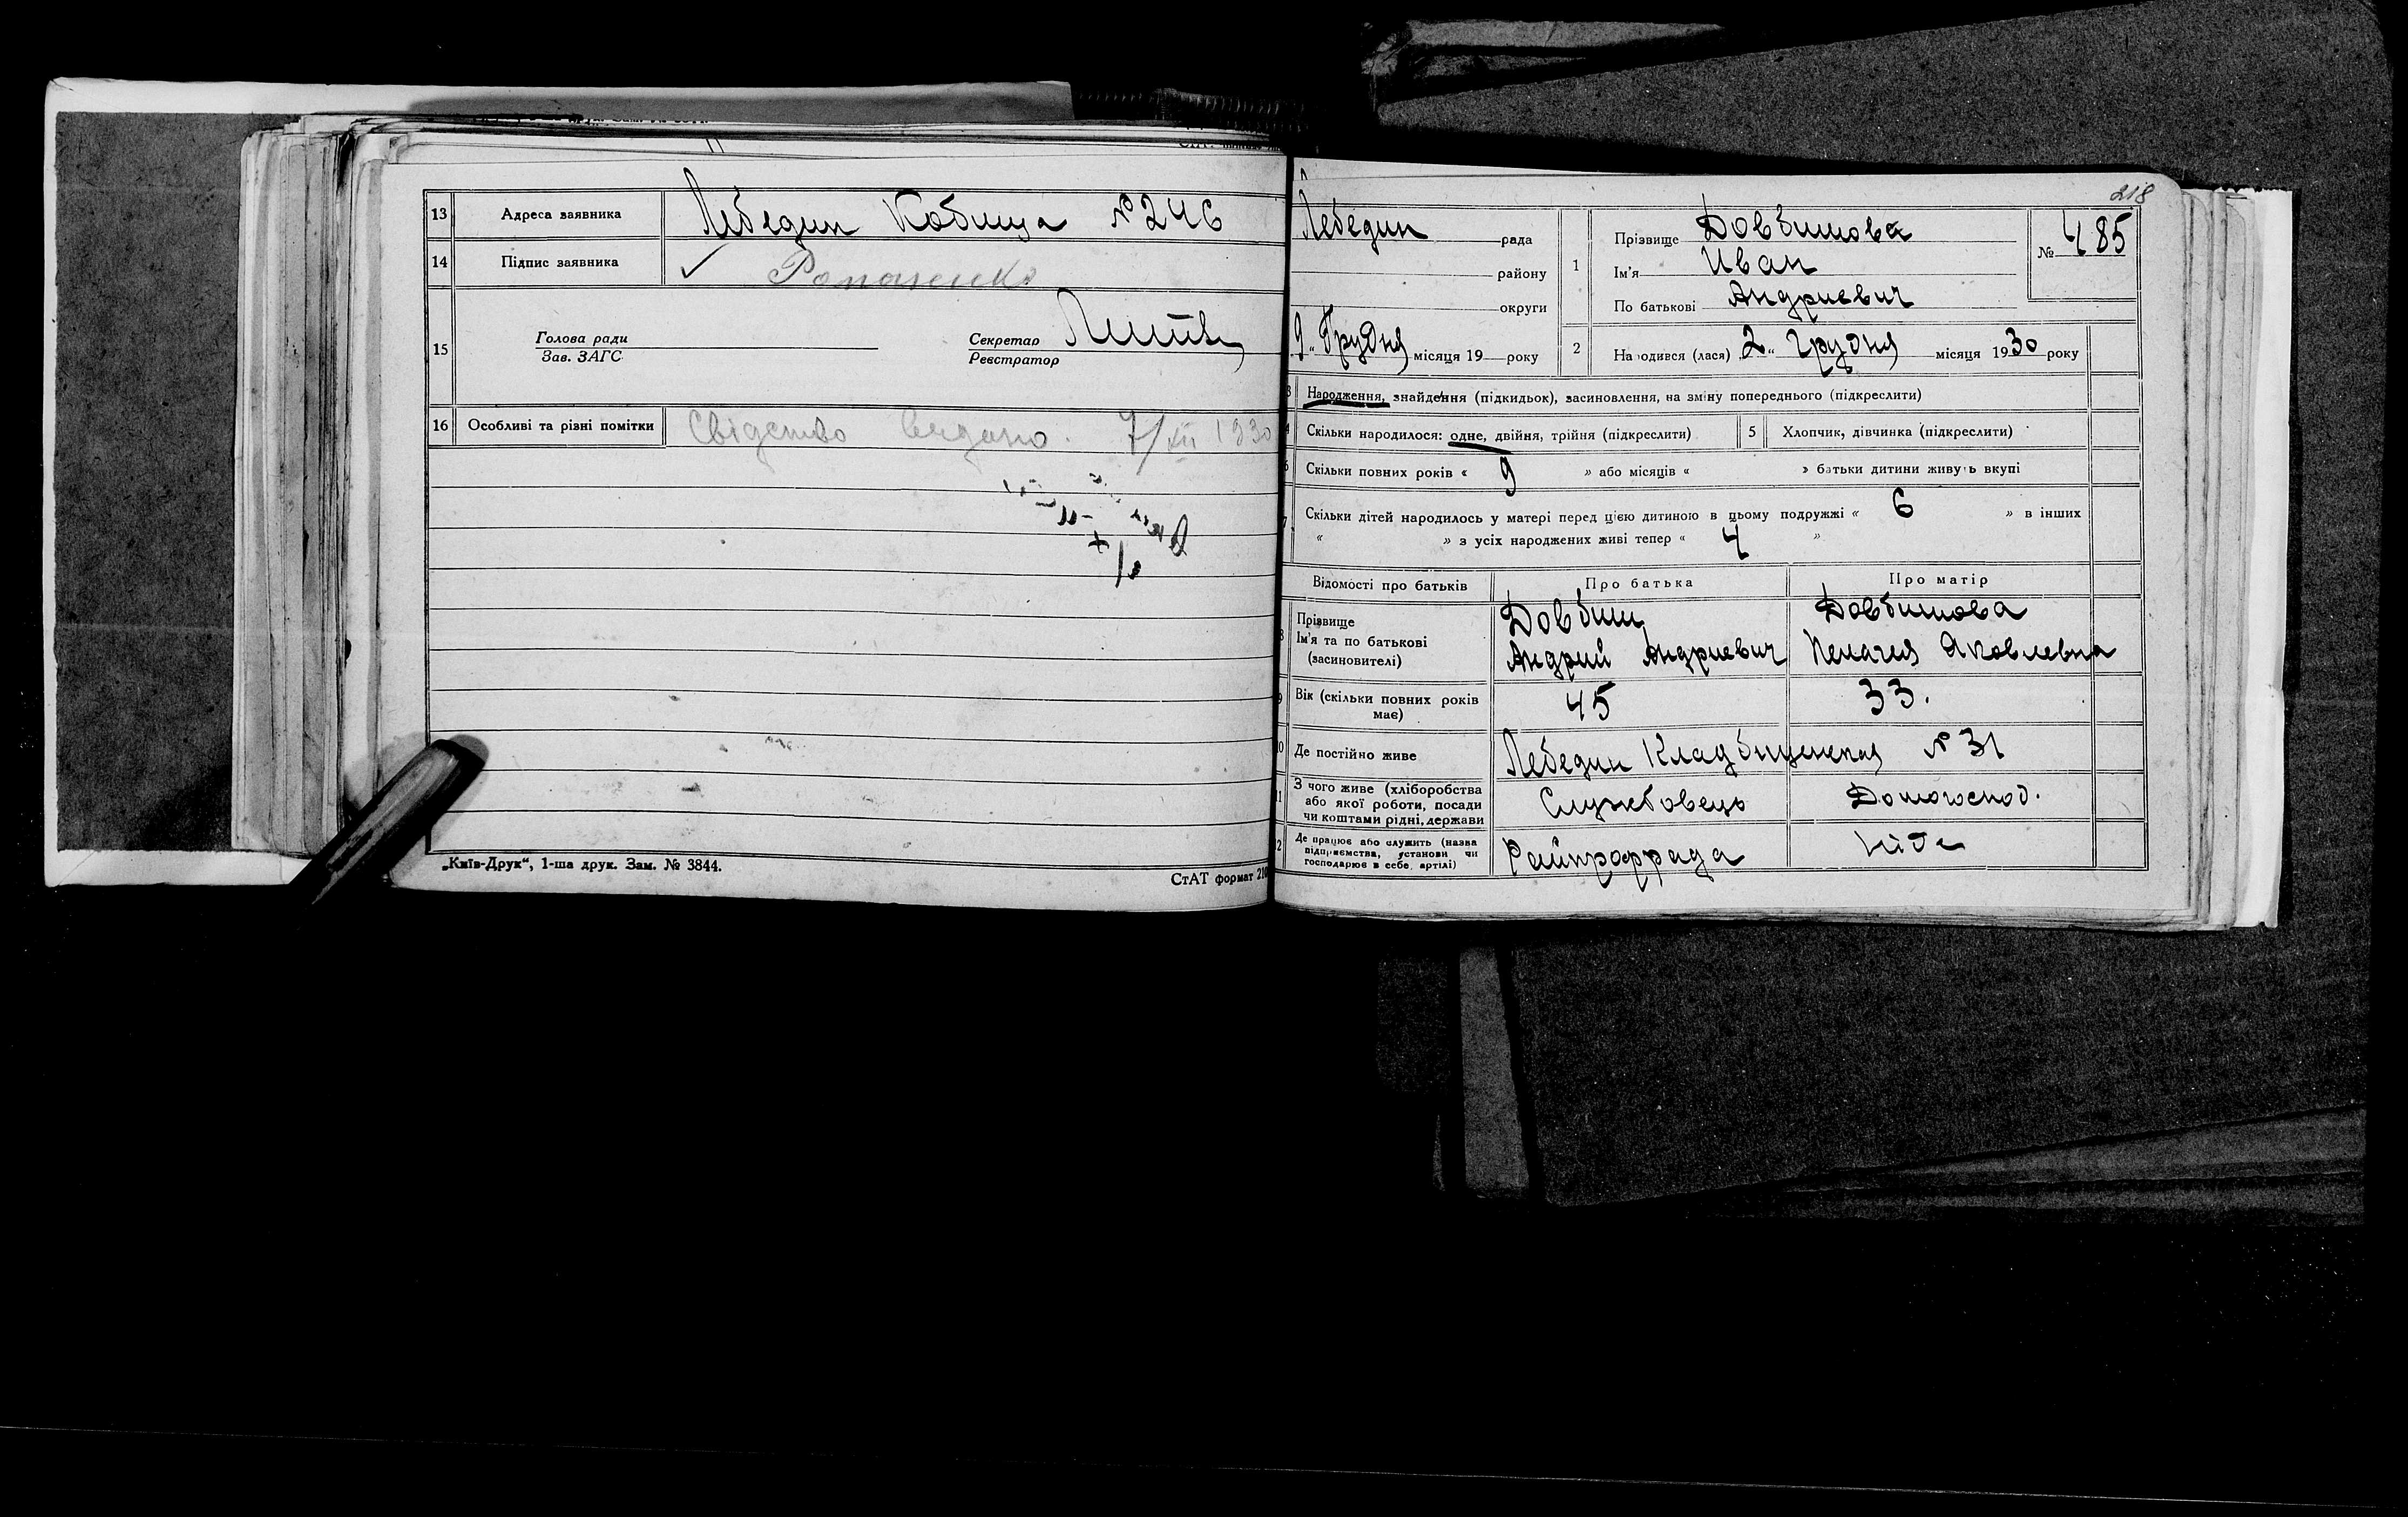 13 Адреса заявника Лебедин Кобища № 246
14 Підпис заявника
15 Голова ради
Зав. ЗАГС
Секретар
Реєстратор
16 Особливі та різні помітки Свідство видано. 7/XII 1930
„Київ-Друк“, 1-ша друк. Зам. № 3844.
СтАТ формат 210
218
Лебедин рада
району
округи
9 „ Грудня місяця 19 року
1 Прізвище Довбишова
Ім'я Иван
По батькові Андриевич
№ 485
2 Народився (лася) 2 „ грудня місяця 1930 року
3 Народження, знайдення (підкидьок), засиновлення, на зміну попереднього (підкреслити)
4 Скільки народилося: одне, двійня, трійня (підкреслити) 5 Хлопчик, дівчинка (підкреслити)
6 Скільки повних років « 9 » або місяців « » батьки дитини живуть вкупі
7 Скільки дітей народилось у матері перед цією дитиною в цьому подружжі « 6 » в інших
« » з усіх народжених живі тепер « 4 »
Відомості про батьків Про батька Про матір
8 Прізвище Довбиш Довбишова
Ім'я та по батькові Андрий Андриевич Пелагия Яковлевна
(засиновителі)
9 Вік (скільки повних років має) 45 33.
10 Де постійно живе Лебедин Кладбищенская № 31
11 З чого живе (хліборобства або якої роботи, посади чи коштами рідні, держави Службовець Домогоспод.
12 Де працює або служить (назва підприємства, установи чи господарює в себе, артілі) Райпрофрада